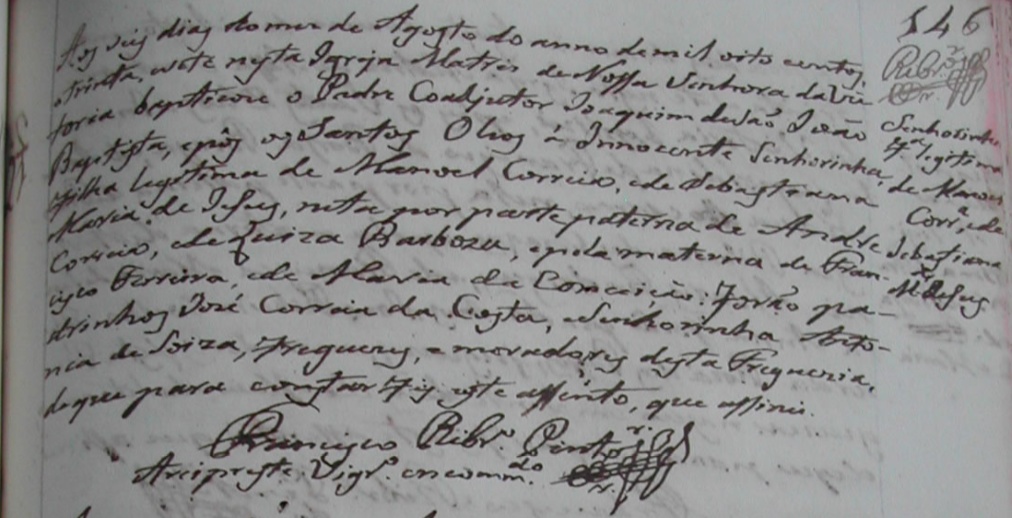 Aos seis dias do mes de Agosto do anno de mil oito centos,
e trinta, e oito nesta Igreja Matris de Nossa Senhora da Vic
toria baptizou o Padre Coadjutor Joaquim de São João
Baptista, e pôs os Santos Oleos à Innocente Senhorinha,
Filha legitima de Manoel Correia, e de Sebastiana
Maria de Jesus, neta por parte paterna de Andre
Correia, e Luiza Barboza, e pela materna de Fran-
cisco Ferreira, e de Maria da Conceição: Forão pa-
drinhos José Correia da Costa, e Senhorinha Anto-
nia de Soiza, Freguezes, e moradores desta Freguezia,
do que para constar fiz este assento, que assinei.
Francisco Ribr.o Pinto
Arcipreste Vigr.o encomm.do
146
Ribr.o
Senhorinha
F.a legitima
de Manoel
Corr.a, e de
Sebastiana
M.a de Jesus